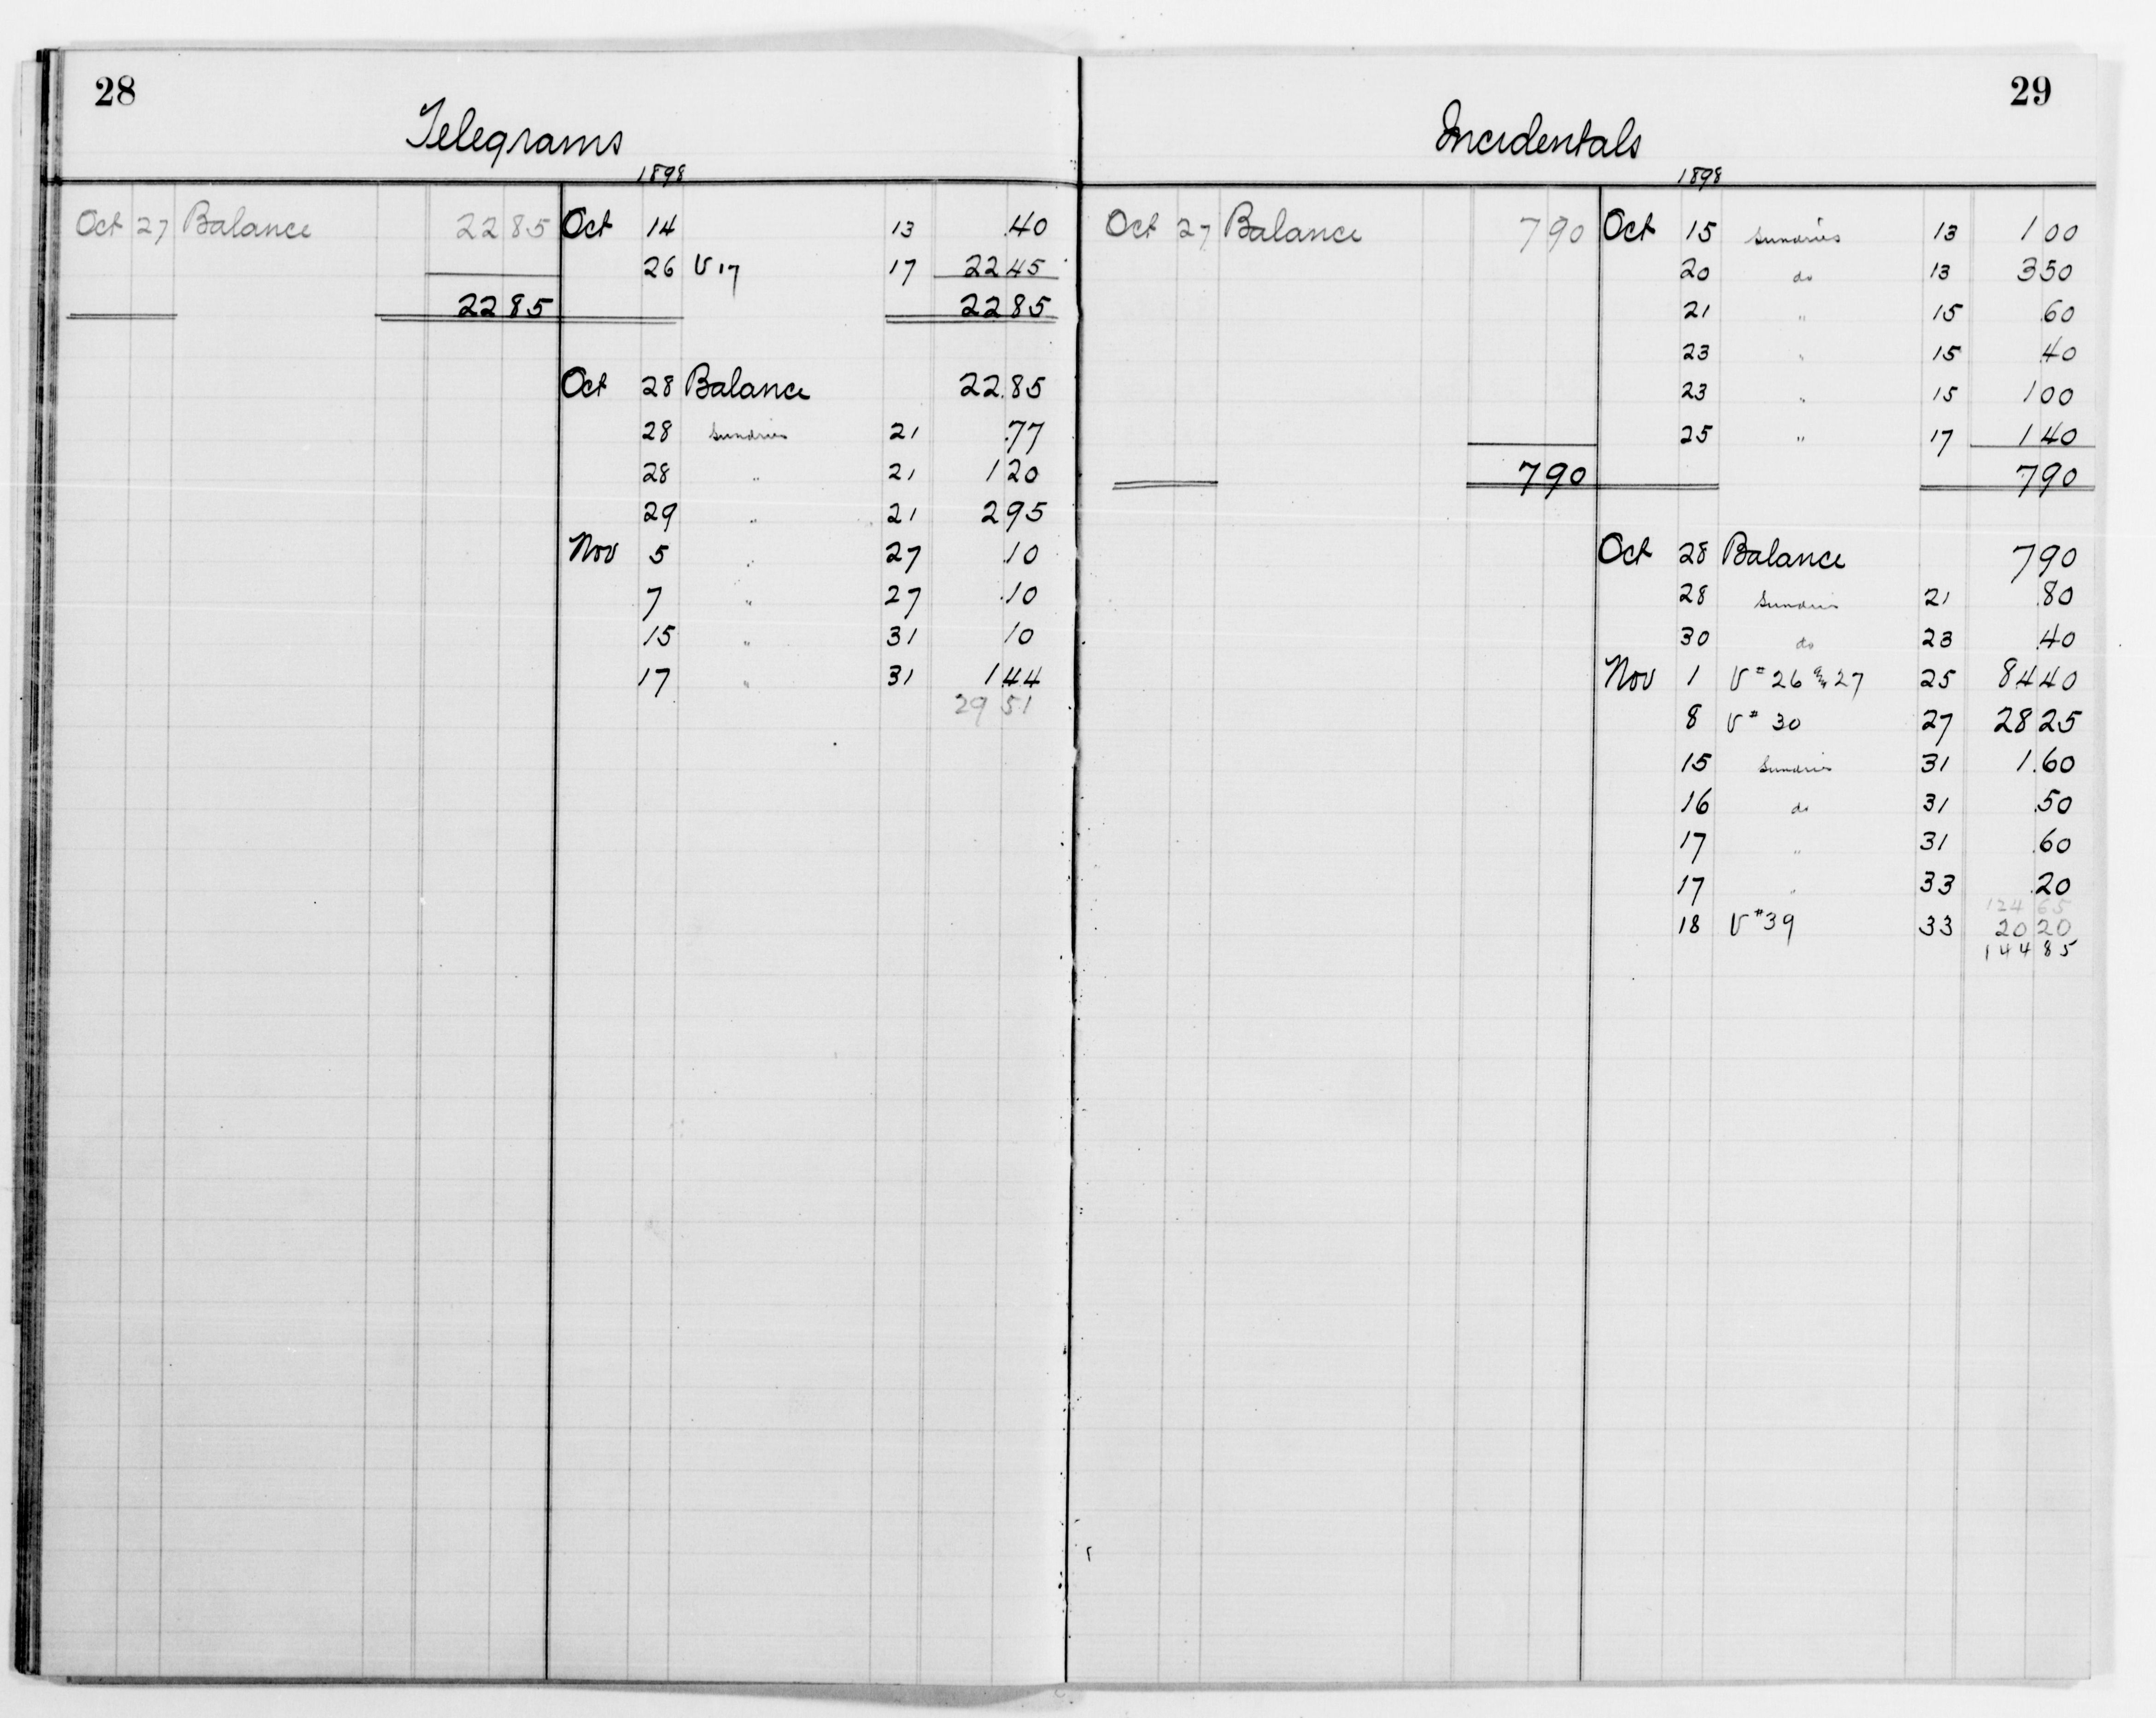 28
Telegrams
1898
Oct 27 Balance 22 85 Oct 14 13 .40
26 V 17 17 22 45
22 85 22 85
Oct 28 Balance 22.85
28 Sundries 21 .77
28 " 21 1 20
29 " 21 2 95
Nov 5 " 27 .10
7 " 27 .10
15 " 31 10
17 " 31 1.44
29 51
29
Incidentals
1898
Oct 27 Balance 7 90 Oct 15 Sundries 13 1 00
20 do 13 3 50
21 " 15 60
23 " 15 40
23 " 15 1 00
25 " 17 1 40
7 90 7 90
Oct 28 Balance 7 90
28 Sundries 21 .80
30 do 23 .40
Nov 1 V# 26 & 27 25 84 40
8 V# 30 27 28 25
15 Sundries 31 1.60
16 do 31 .50
17 " 31 .60
17 " 33 .20
124 65
18 V#39 33 20 20
144 85